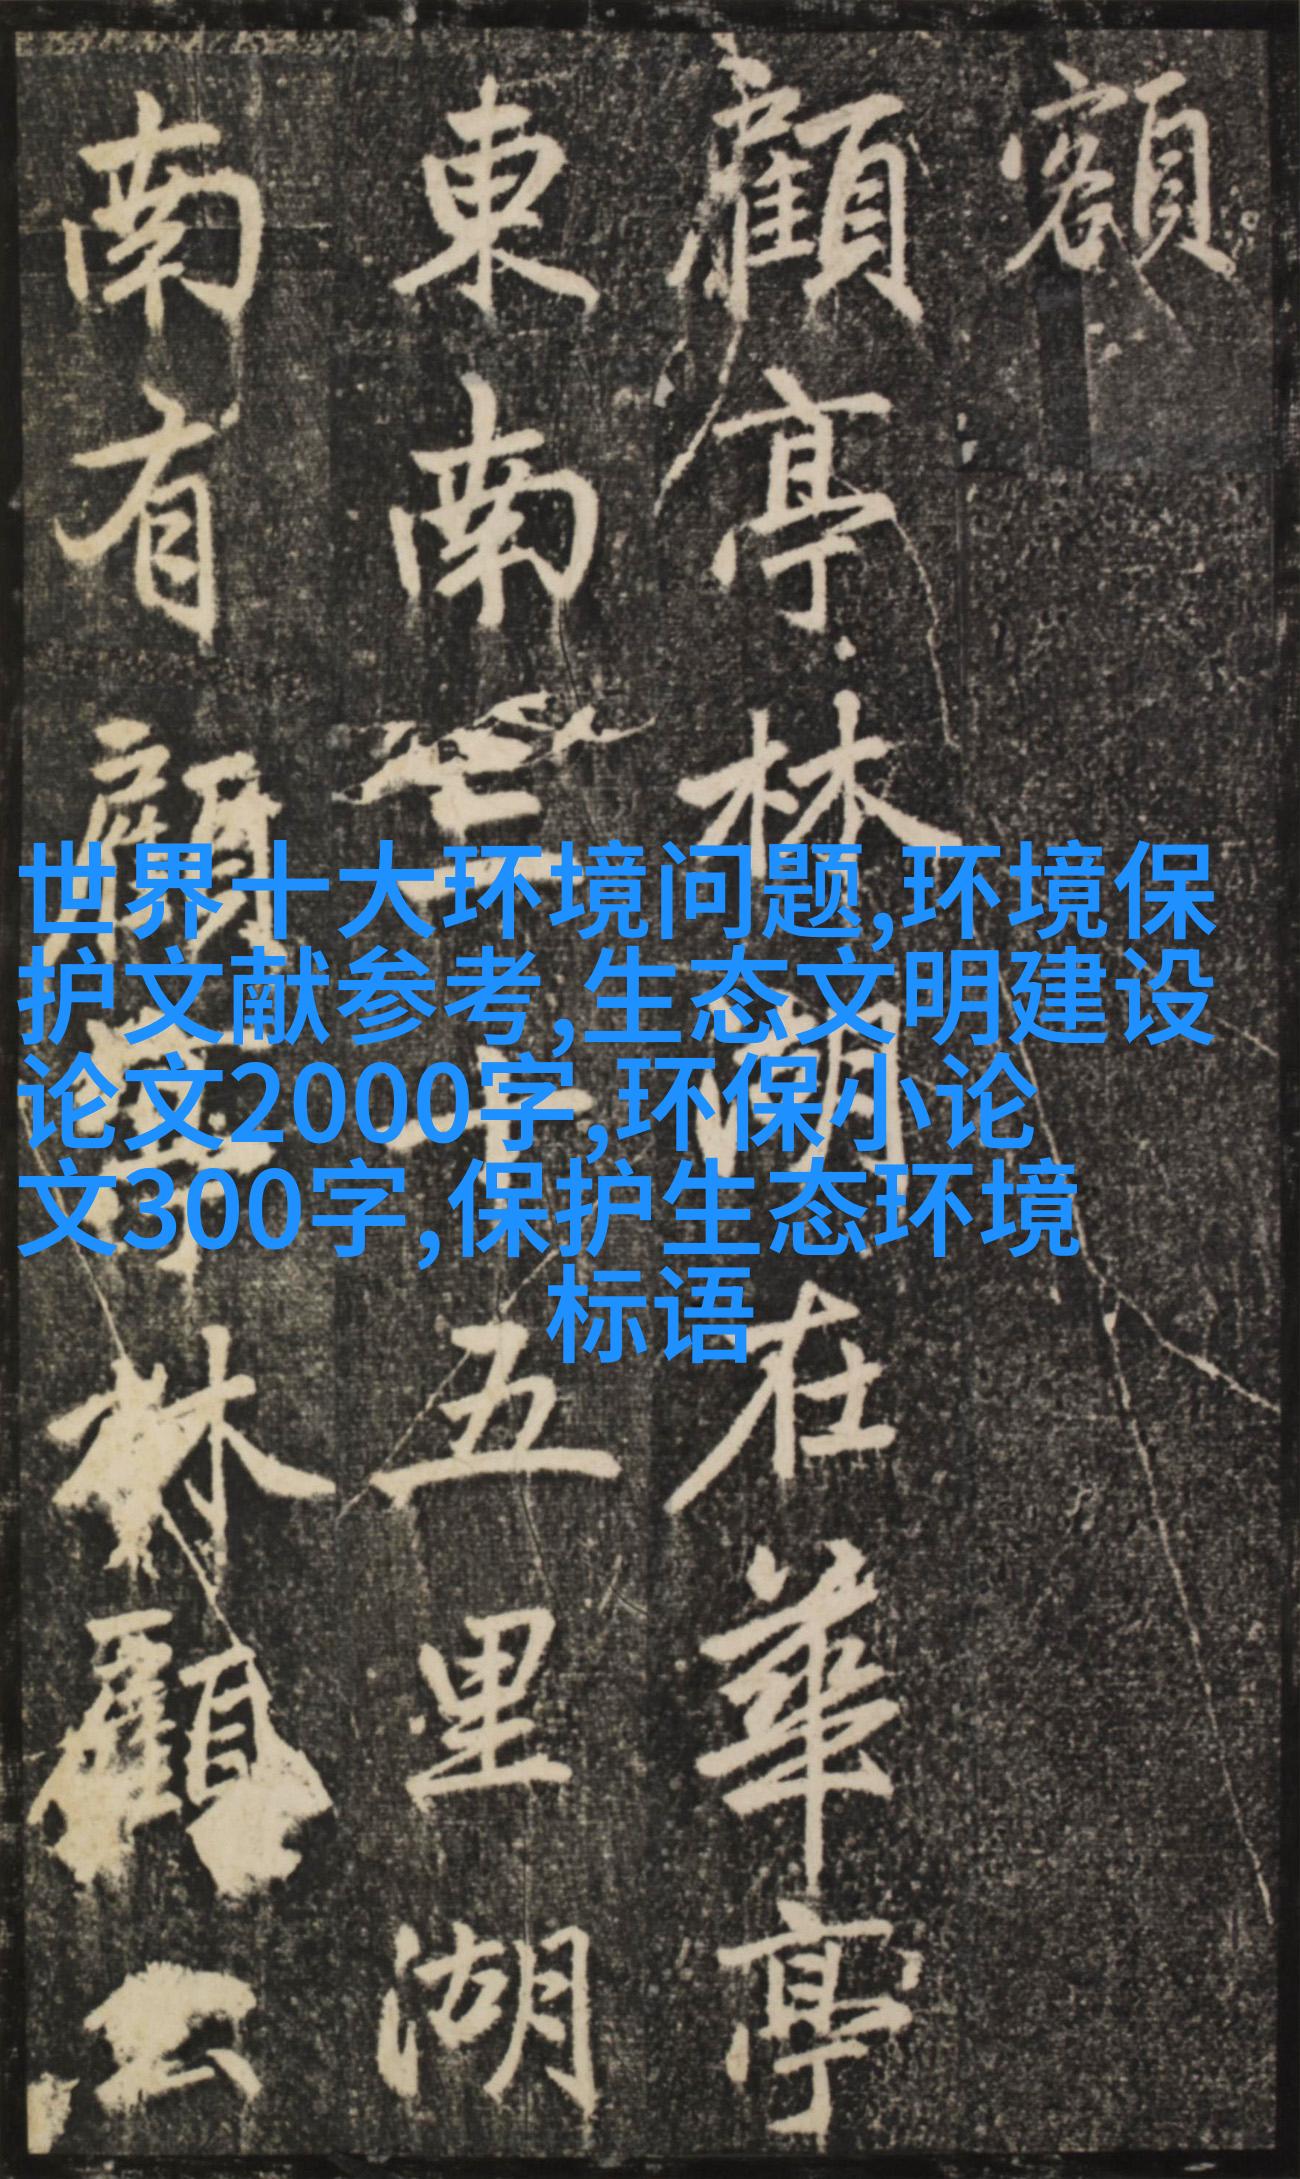 額
顧亭林湖在華亭
東南三十五里湖
南有顧亭林顧公
世界十大环境问题,环境保
护文献参考,生态文明建设
论文2000字,环保小论
文300字,保护生态环境
标语